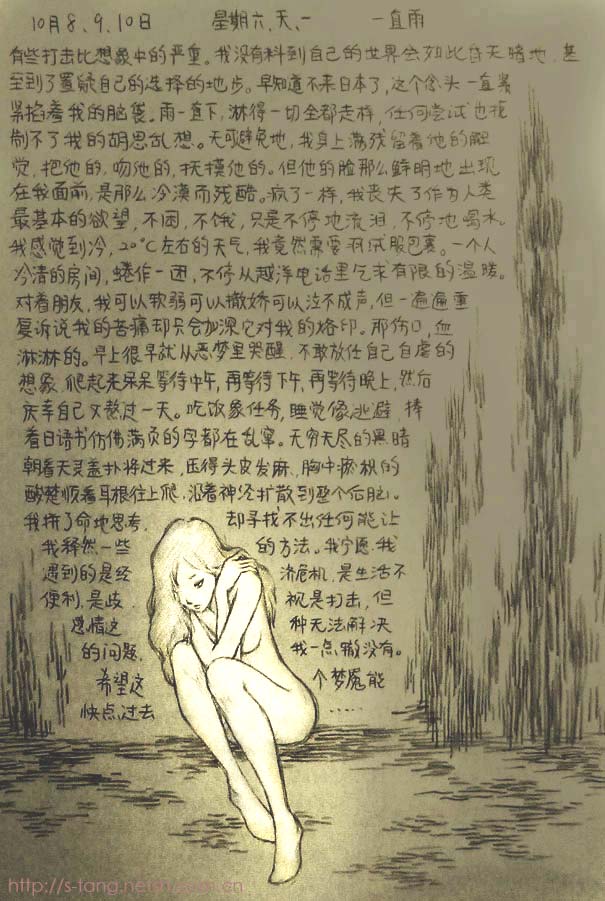 10月8、9、10日 星期六、天、一 一直雨
有些打击比想象中的严重。我没有料到自己的世界会如此昏天暗地，甚
至到了置疑自己的选择的地步。早知道不来日本了，这个念头一直紧
紧掐着我的脑袋。雨一直下，淋得一切全都走样，任何尝试也扼
制不了我的胡思乱想。无可避免地，我身上满残留着他的触
觉，抱他的，吻他的，抚摸他的。但他的脸那么鲜明地出现
在我面前，是那么冷漠而残酷。疯了一样，我丧失了作为人类
最基本的欲望，不困，不饿，只是不停地流泪，不停地喝水。
我感觉到冷，20°C左右的天气，我竟然需要羽绒服包裹。一个人
冷清的房间，蜷作一团，不停从越洋电话里乞求有限的温暖。
对着朋友，我可以软弱可以撒娇可以泣不成声，但一遍遍重
复诉说我的苦痛却只会加深它对我的烙印。那伤口，血
淋淋的。早上很早就从恶梦里哭醒，不敢放任自己自虐的
想象，爬起来呆呆等待中午，再等待下午，再等待晚上，然后
庆幸自己又熬过一天。吃饭象任务，睡觉像逃避，捧
着日语书仿佛满页的字都在乱窜。无穷无尽的黑暗
朝着天灵盖扑将过来，压得头皮发麻，胸中瘀积的
酸楚顺着耳根往上爬，沿着神经扩散到整个后脑。
我拼了命地思考，却寻找不出任何能让
我释然一些的方法。我宁愿我
遇到的是经济危机，是生活不
便利，是歧视是打击，但
感情这种无法解决
的问题，我一点辙没有。
希望这个梦魇能
快点过去……